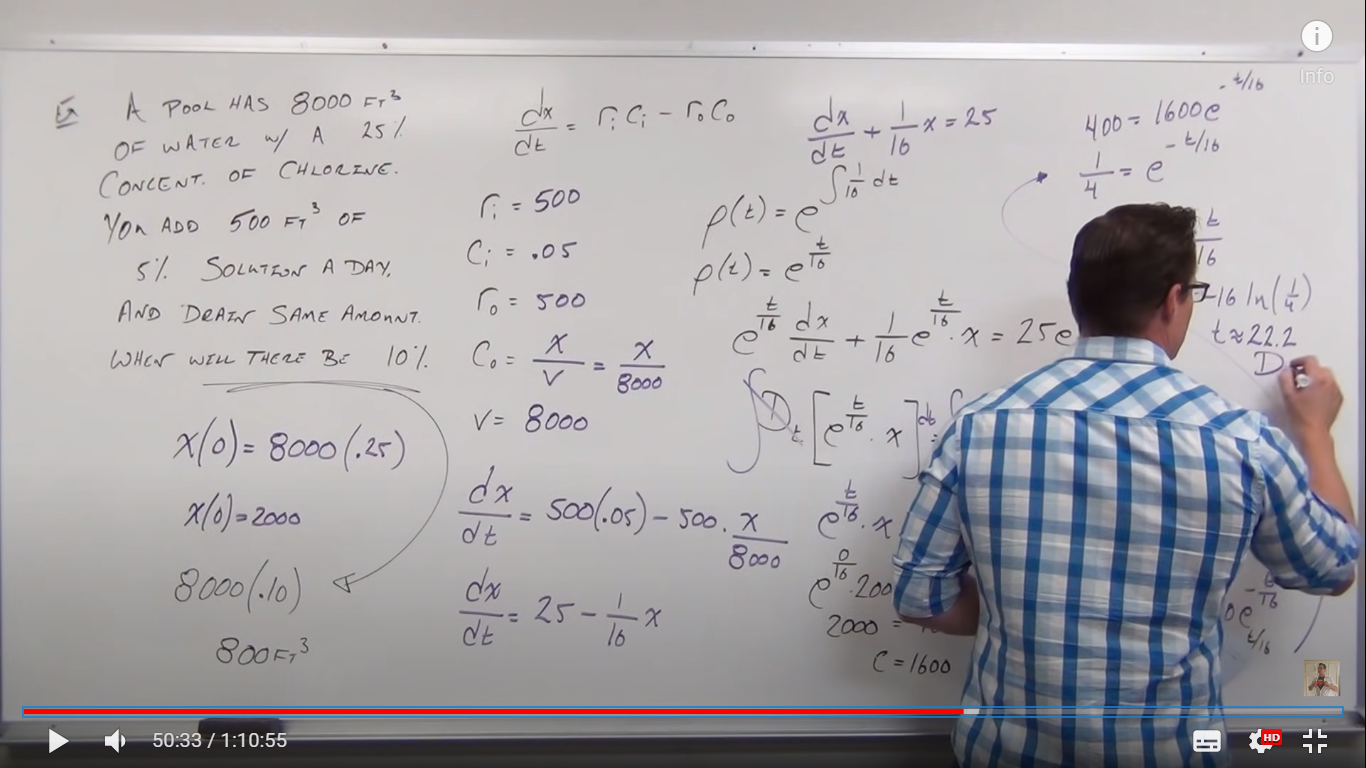 Ex A POOL HAS 8000 FT³
OF WATER W/ A 25%
CONCENT. OF CHLORINE.
YOU ADD 500 FT³ OF
5% SOLUTION A DAY,
AND DRAIN SAME AMOUNT.
WHEN WILL THERE BE 10%.
x(0) = 8000(.25)
x(0) = 2000
8000(.10)
800 FT³
dx/dt = rᵢCᵢ − r₀C₀
rᵢ = 500
Cᵢ = .05
r₀ = 500
C₀ = x/V = x/8000
V = 8000
dx/dt = 500(.05) − 500 · x/8000
dx/dt = 25 − 1/16 x
dx/dt + 1/16 x = 25
ρ(t) = e^∫ 1/16 dt
ρ(t) = e^t/16
e^t/16 dx/dt + 1/16 e^t/16 · x = 25e
∫ Dₜ [e^t/16 · x] dt =
e^t/16 · x
e^0/16 · 200
2000 =
C = 1600
400 = 1600e^-t/16
1/4 = e^-t/16
t/16
-16 ln(1/4)
t ≈ 22.2
D
0e^-t/16
t/16
Info
50:33 / 1:10:55
HD